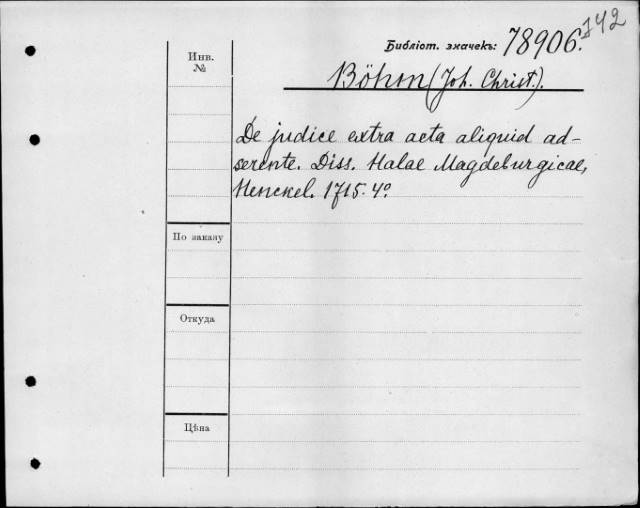 Библіот. значекъ: 78906.
742
Инв. №
Böhm (Joh. Christ.).
De judice extra acta aliquid ad-
serente. Diss. Halae Magdeburgicae,
Henckel. 1715. 4º.
По заказу
Откуда
Цѣна